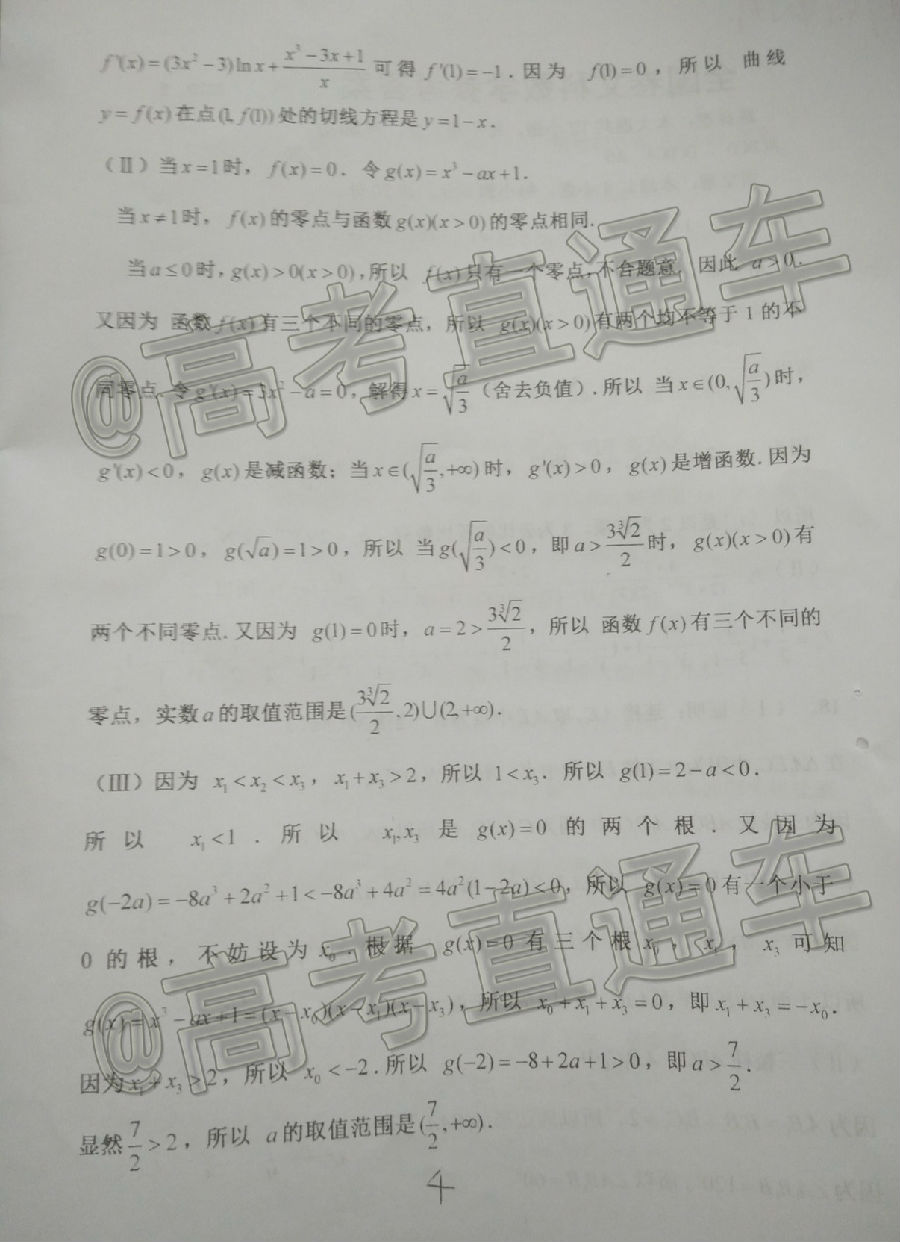 f'(x)=(3x²-3)ln x+\frac{x³-3x+1}{x} 可得 f'(1)=-1.因为 f(1)=0，所以 曲线
y=f(x)在点(1, f(1))处的切线方程是y=1-x.
（Ⅱ）当x=1时，f(x)=0.令g(x)=x³-ax+1.
当x≠1时，f(x)的零点与函数g(x)(x>0)的零点相同.
当a≤0时,g(x)>0(x>0),所以 f(x)只有一个零点,不合题意，因此 a>0.
又因为 函数f(x)有三个不同的零点，所以 g(x)(x>0)有两个均不等于 1 的不
同零点.令g'(x)=3x²-a=0，解得x=\sqrt{\frac{a}{3}}（舍去负值）.所以 当x∈(0,\sqrt{\frac{a}{3}})时，
g'(x)<0，g(x)是减函数；当x∈(\sqrt{\frac{a}{3}},+∞)时，g'(x)>0，g(x)是增函数.因为
g(0)=1>0，g(\sqrt{a})=1>0，所以 当g(\sqrt{\frac{a}{3}})<0，即a>\frac{3\sqrt[3]{2}}{2}时，g(x)(x>0)有
两个不同零点.又因为 g(1)=0时，a=2>\frac{3\sqrt[3]{2}}{2}，所以 函数f(x)有三个不同的
零点，实数a的取值范围是(\frac{3\sqrt[3]{2}}{2},2)∪(2,+∞).
（Ⅲ）因为 x₁<x₂<x₃，x₁+x₃>2，所以 1<x₃. 所以 g(1)=2-a<0.
所以 x₁<1.所以 x₁,x₃是g(x)=0的两个根.又因为
g(-2a)=-8a³+2a²+1<-8a³+4a²=4a²(1-2a)<0，所以 g(x)=0有一个小于
0的根，不妨设为x₀.根据 g(x)=0有三个根x₀，x₁，x₃可知
g(x)=x³-ax+1=(x-x₀)(x-x₁)(x-x₃)，所以 x₀+x₁+x₃=0，即x₁+x₃=-x₀.
因为x₁+x₃>2，所以 x₀<-2.所以 g(-2)=-8+2a+1>0，即a>\frac{7}{2}.
显然\frac{7}{2}>2，所以 a的取值范围是(\frac{7}{2},+∞).
4
@高考直通车
@高考直通车